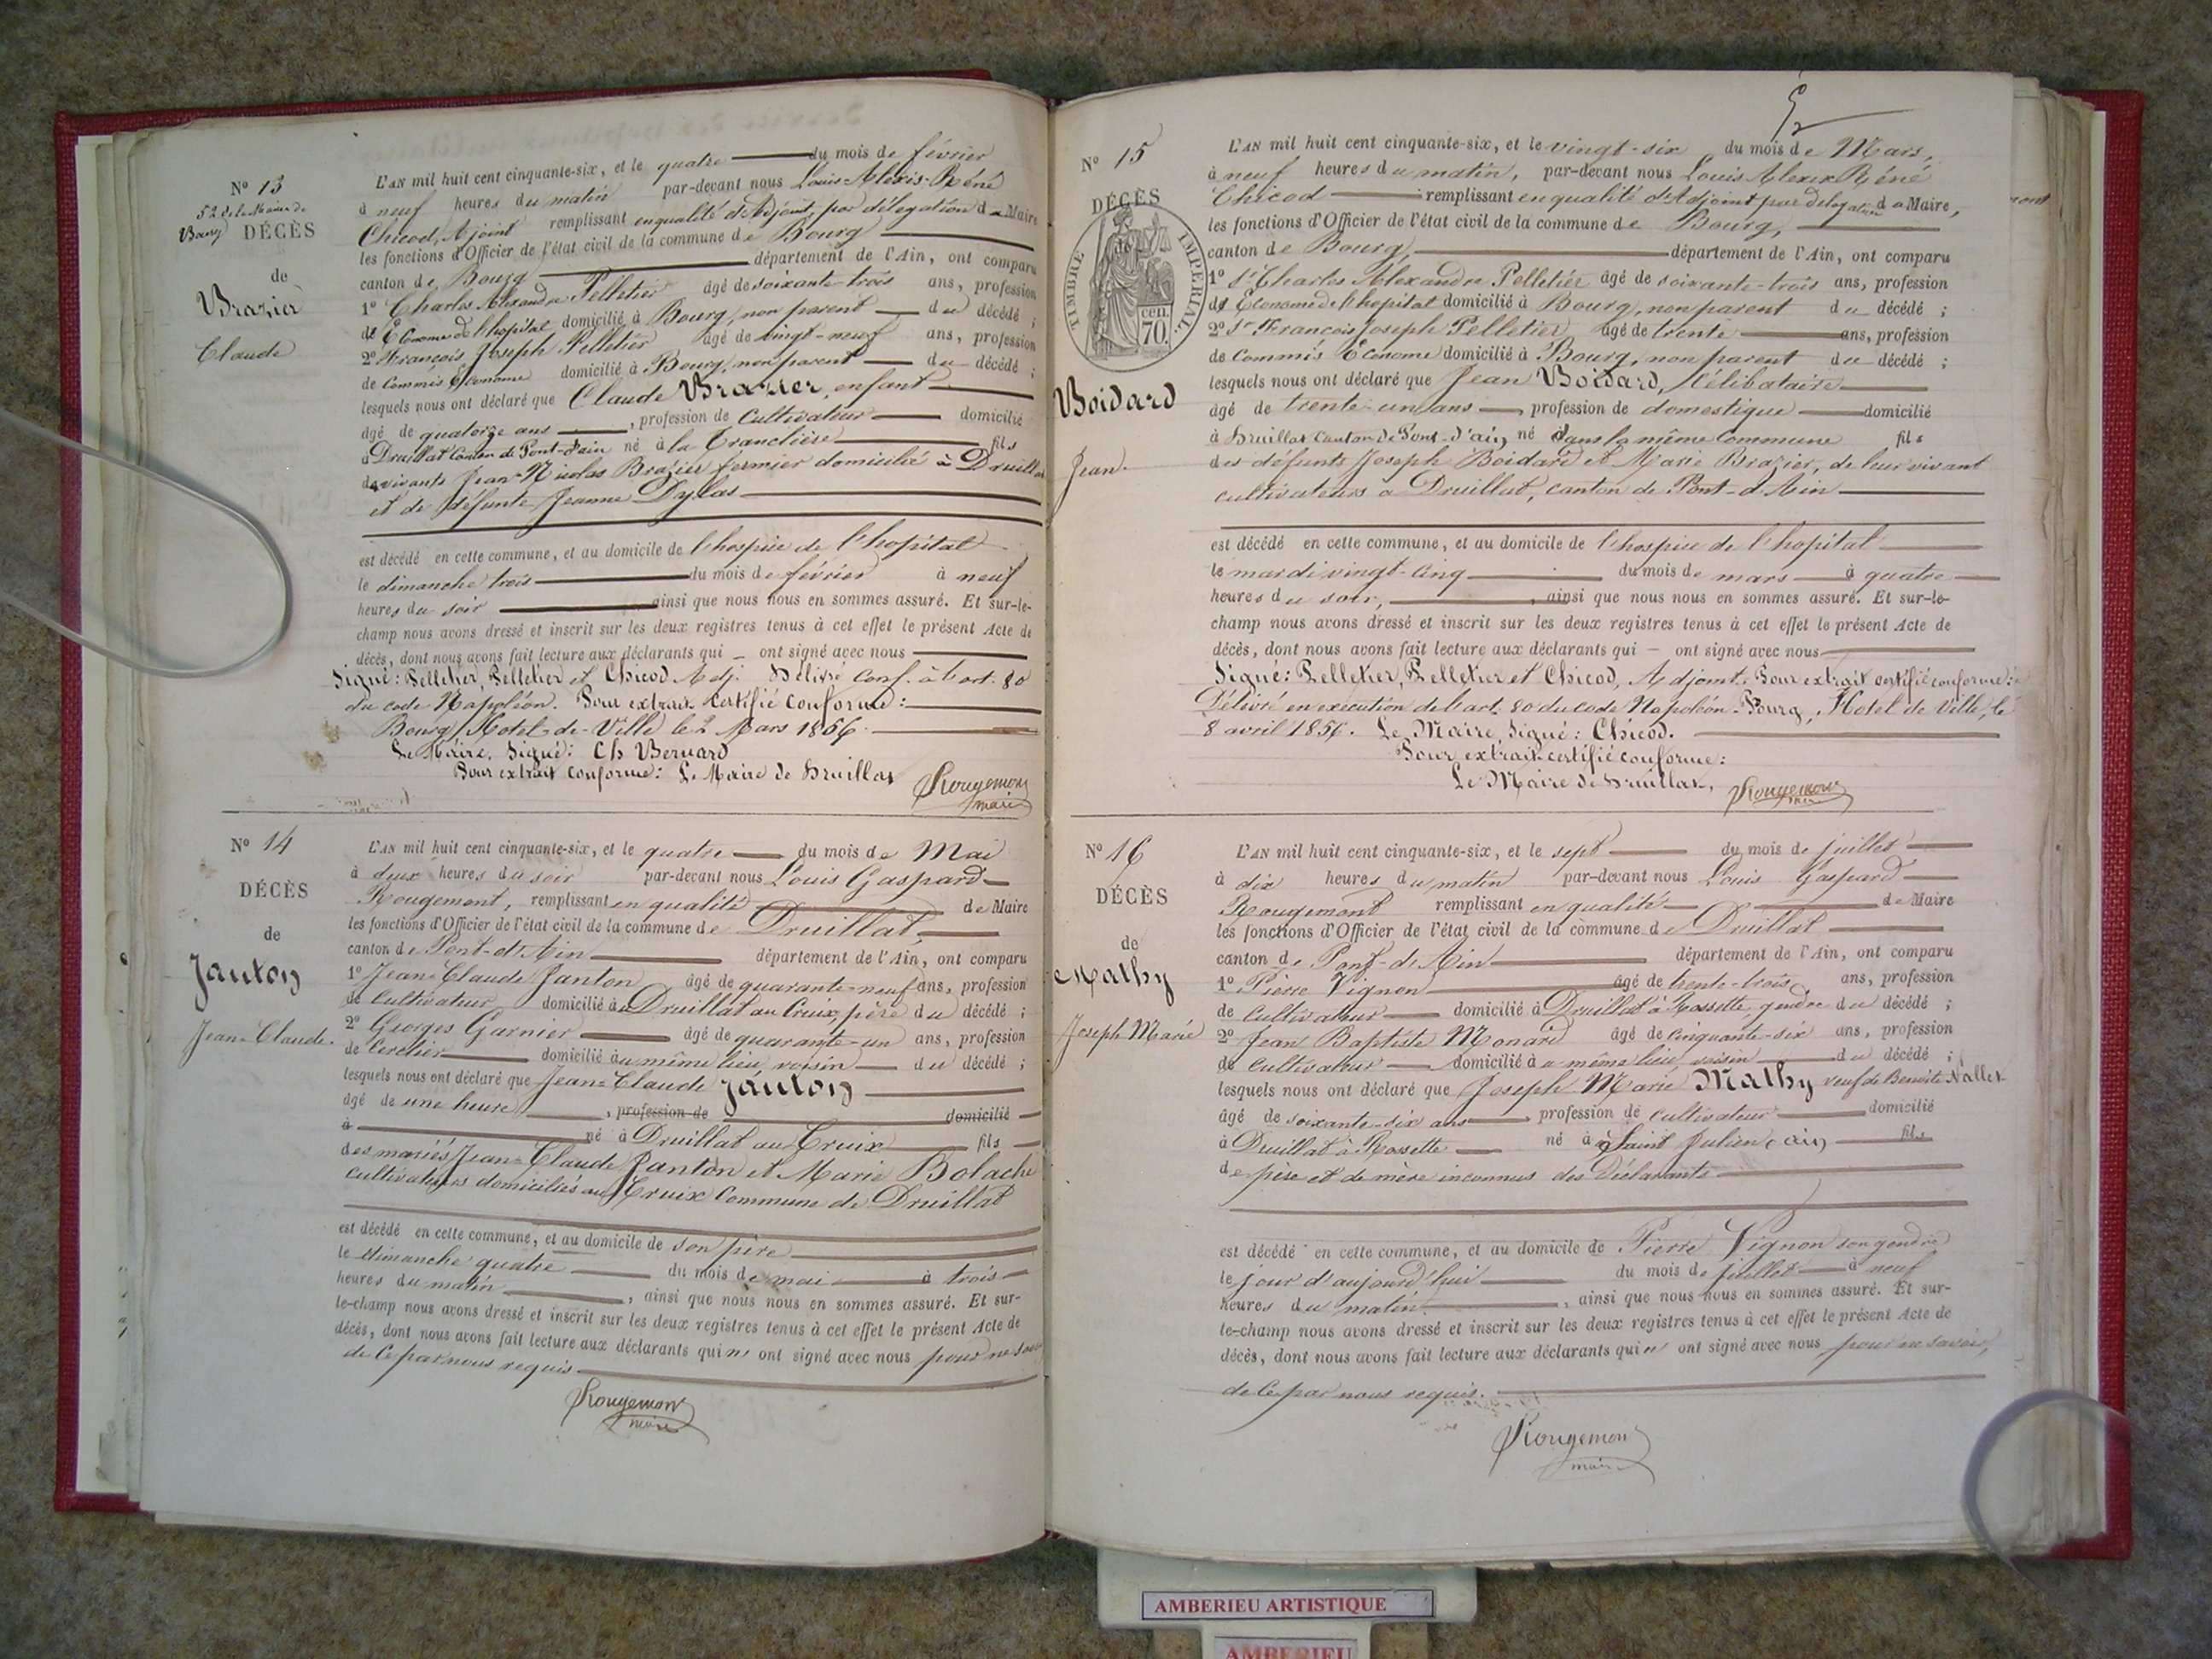 N° 13
52 de la Mairie de
Bourg DÉCÈS
de
Brazier
Claude
L'AN mil huit cent cinquante-six, et le quatre du mois de février
à neuf heures du matin par-devant nous Louis-Alexis-Réné
Chicod, Adjoint remplissant en qualité d'Adjoint, par délégation de Maire
les fonctions d'Officier de l'état civil de la commune de Bourg
canton de Bourg département de l'Ain, ont comparu
1° Charles Alexandre Pelletier âgé de soixante-trois ans, profession
de Econome de l'hopital domicilié à Bourg, non parent du décédé ;
2° François Joseph Pelletier âgé de vingt-neuf ans, profession
de Commis Econome domicilié à Bourg, non parent du décédé ;
lesquels nous ont déclaré que Claude Brazier, enfant
âgé de quatorze ans, profession de Cultivateur domicilié
à Druillat Canton de Pont-d'ain né à la Tranclière fils
de vivants Jean-Nicolas Brazier fermier domicilié à Druillat
et de défunte Jeanne Dylas
est décédé en cette commune, et au domicile de l'hospice de l'hopital
le dimanche trois du mois de février à neuf
heures du soir ainsi que nous nous en sommes assuré. Et sur-le-
champ nous avons dressé et inscrit sur les deux registres tenus à cet effet le présent Acte de
décès, dont nous avons fait lecture aux déclarants qui ont signé avec nous
Signé : Pelletier, Pelletier et Chicod Adj. Délivré conf. à l'art. 80
du code Napoléon. Pour extrait certifié conforme :
Bourg, Hotel-de-Ville le 2 Mars 1856.
Le Maire, Signé : Ch Bernard
Pour extrait conforme : Le Maire de Druillat
Rougemont
maire
N° 14
DÉCÈS
de
Janton
Jean-Claude.
L'AN mil huit cent cinquante-six, et le quatre du mois de Mai
à deux heures du soir par-devant nous Louis Gaspard
Rougemont, remplissant en qualité de Maire
les fonctions d'Officier de l'état civil de la commune de Druillat,
canton de Pont-d'Ain département de l'Ain, ont comparu
1° Jean-Claude Janton âgé de quarante-neuf ans, profession
de Cultivateur domicilié à Druillat au Cruix, père du décédé ;
2° Georges Garnier âgé de quarante-un ans, profession
de Cerclier domicilié au même lieu, voisin du décédé ;
lesquels nous ont déclaré que Jean-Claude Janton
âgé de une heure, profession de domicilié
à né à Druillat au Cruix fils
des mariés Jean-Claude Janton et Marie Bolache
cultivateurs domiciliés au Cruix Commune de Druillat
est décédé en cette commune, et au domicile de son père
le Dimanche quatre du mois de mai à trois
heures du matin, ainsi que nous nous en sommes assuré. Et sur-
le-champ nous avons dressé et inscrit sur les deux registres tenus à cet effet le présent Acte de
décès, dont nous avons fait lecture aux déclarants qui n' ont signé avec nous pour ne savoir
de ce par nous requis
Rougemont
maire
N° 15
DÉCÈS
de
TIMBRE IMPERIAL.
cen.
70.
Boidard
Jean.
L'AN mil huit cent cinquante-six, et le vingt-six du mois de Mars,
à neuf heures du matin, par-devant nous Louis Alexis Réné
Chicod remplissant en qualité d'Adjoint par délégation de Maire,
les fonctions d'Officier de l'état civil de la commune de Bourg,
canton de Bourg, département de l'Ain, ont comparu
1° Sr Charles Alexandre Pelletier âgé de soixante-trois ans, profession
d' Econome de l'hopital domicilié à Bourg, non parent du décédé ;
2° Sr François Joseph Pelletier âgé de trente ans, profession
de Commis Econome domicilié à Bourg, non parent du décédé ;
lesquels nous ont déclaré que Jean Boidard, Célibataire
âgé de trente-un ans, profession de domestique domicilié
à Druillat Canton de Pont-d'ain, né dans la même Commune fils
des défunts Joseph Boidard et Marie Brazier, de leur vivant
cultivateurs à Druillat, canton de Pont-d'Ain
est décédé en cette commune, et au domicile de l'hospice de l'hopital
le mardi vingt-cinq du mois de mars à quatre
heures du soir, ainsi que nous nous en sommes assuré. Et sur-le-
champ nous avons dressé et inscrit sur les deux registres tenus à cet effet le présent Acte de
décès, dont nous avons fait lecture aux déclarants qui ont signé avec nous
Signé : Pelletier, Pelletier et Chicod, Adjoint. Pour extrait certifié conforme :
Délivré en exécution de l'art. 80 du code Napoléon. Bourg, Hotel de Ville, le
8 avril 1856. Le Maire, Signé : Chicod.
Pour extrait certifié conforme :
Le Maire de Druillat,
Rougemont
N° 16
DÉCÈS
de
Mathy
Joseph Marie
L'AN mil huit cent cinquante-six, et le sept du mois de juillet
à dix heures du matin par-devant nous Louis Gaspard
Rougemont remplissant en qualité de Maire
les fonctions d'Officier de l'état civil de la commune de Druillat
canton de Pont-d'Ain département de l'Ain, ont comparu
1° Pierre Vignon âgé de trente-trois ans, profession
de Cultivateur domicilié à Druillat à Rossette, gendre du décédé ;
2° Jean Baptiste Monard âgé de Cinquante-six ans, profession
de Cultivateur domicilié au même lieu, voisin du décédé ;
lesquels nous ont déclaré que Joseph Marie Mathy veuf de Benoite Nallet
âgé de soixante-six ans profession de cultivateur domicilié
à Druillat à Rossette né à Saint Julien, ain, fils
de père et de mère inconnus des Déclarants
est décédé en cette commune, et au domicile de Pierre Vignon son gendre
le jour d'aujourd'hui du mois de juillet à neuf
heures du matin, ainsi que nous nous en sommes assuré. Et sur-
le-champ nous avons dressé et inscrit sur les deux registres tenus à cet effet le présent Acte de
décès, dont nous avons fait lecture aux déclarants qui n' ont signé avec nous pour ne savoir,
de ce par nous requis.
Rougemont
maire
AMBERIEU ARTISTIQUE
AMBERIEU